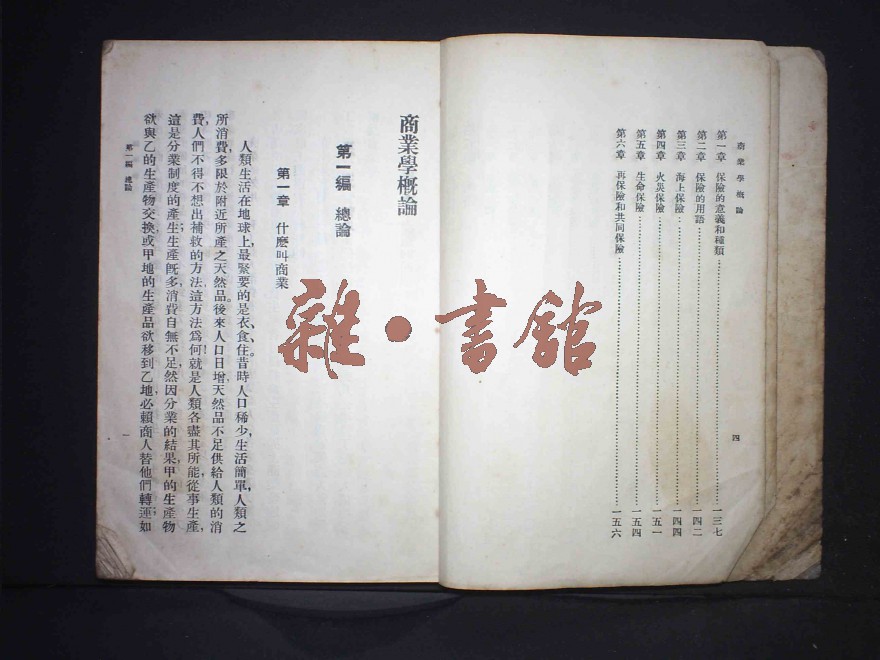 商業學概論
第一章　保險的意義和種類……一三七
第二章　保險的用語……一四二
第三章　海上保險……一四四
第四章　火災保險……一五一
第五章　生命保險……一五四
第六章　再保險和共同保險……一五六
四
商業學概論
第一編　總論
第一章　什麽叫商業
人類生活在地球上,最緊要的是衣、食、住。昔時人口稀少,生活簡單,人類之
所消費,多限於附近所產之天然品。後來人口日增,天然品不足供給人類的消
費,人們不得不想出補救的方法,這方法爲何?就是人類各盡其所能,從事生產,
這是分業制度的產生;生產旣多,消費自無不足,然因分業的結果,甲的生產物
欲與乙的生產物交換,或甲地的生產品欲移到乙地,必賴商人替他們轉運;如
第一編　總論
一
雜·書館